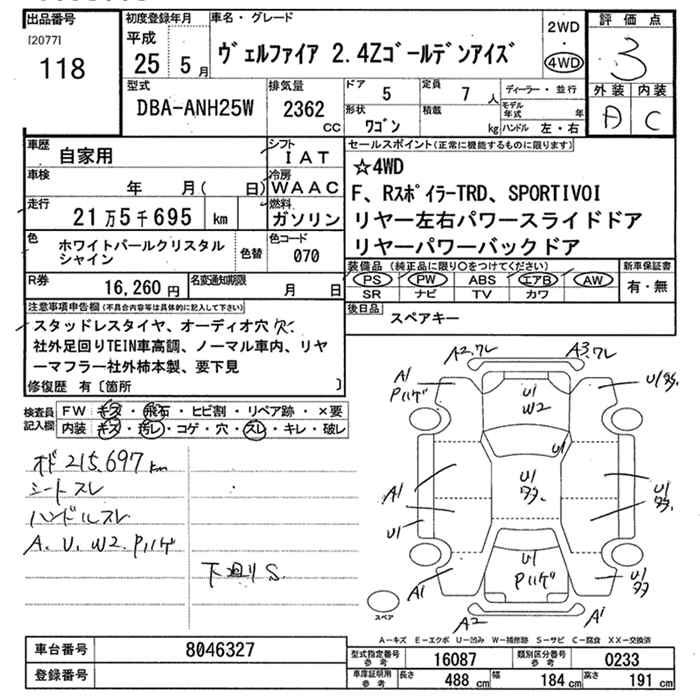 出品番号
[2077]
118
初度登録年月
平成
25 5 月
車名・グレード
ヴェルファイア 2.4Zゴールデンアイズ
2WD
・
4WD
評価点
3
外装 内装
A C
型式
DBA-ANH25W
排気量
2362
CC
ドア 5
定員 7 人
形状
ワゴン
積載
kg
ディーラー・並行
モデル年式 年
ハンドル 左・右
車歴
自家用
シフト
IAT
車検
年 月( 日)
冷房
WAAC
走行
21万5千695 km
燃料
ガソリン
色
ホワイトパールクリスタル
シャイン
色替
色コード
070
R券
16,260円
名変通知期限
月 日
セールスポイント(正常に機能するものに限ります)
☆4WD
F、RスポイラーTRD、SPORTIVOI
リヤー左右パワースライドドア
リヤーパワーバックドア
装備品(純正品に限り○をつけてください)
PS PW ABS エアB AW
SR ナビ TV カワ
新車保証書
有・無
後日品
スペアキー
注意事項申告欄(不具合内容等は具体的に記入して下さい)
スタッドレスタイヤ、オーディオ穴欠、
社外足回りTEIN車高調、ノーマル車内、リヤ
ーマフラー社外柿本製、要下見
修復歴 有〔箇所 〕
検査員
記入欄
FW キズ・飛石・ヒビ割・リペア跡・×要
内装 キズ・汚レ・コゲ・穴・スレ・キレ・破レ
オド 215,697km
シートスレ
ハンドルスレ
A、U、W2、Pハゲ
下廻りS
A2.ワレ A3.ワレ
A1
Pハゲ
U1
W2
U1
A1
U1
U1
A1
U1
Pハゲ
A1
A2 A1
スペア
A-キズ E-エクボ U-凹み W-補修跡 S-サビ C-腐食 XX-交換済
車台番号
8046327
登録番号
型式指定番号
参考
16087
類別区分番号
参考
0233
車庫証明用
参考
長さ 488 cm 幅 184 cm 高さ 191 cm